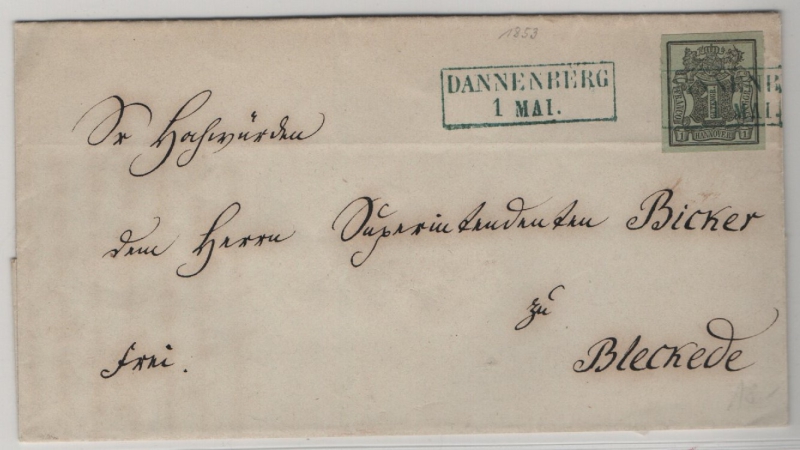 1853
DANNENBERG
1 MAI.
HANNOVER
1 1
Sr Hochwürden
dem Herrn Superintendenten Bicker
zu
Bleckede
frei.